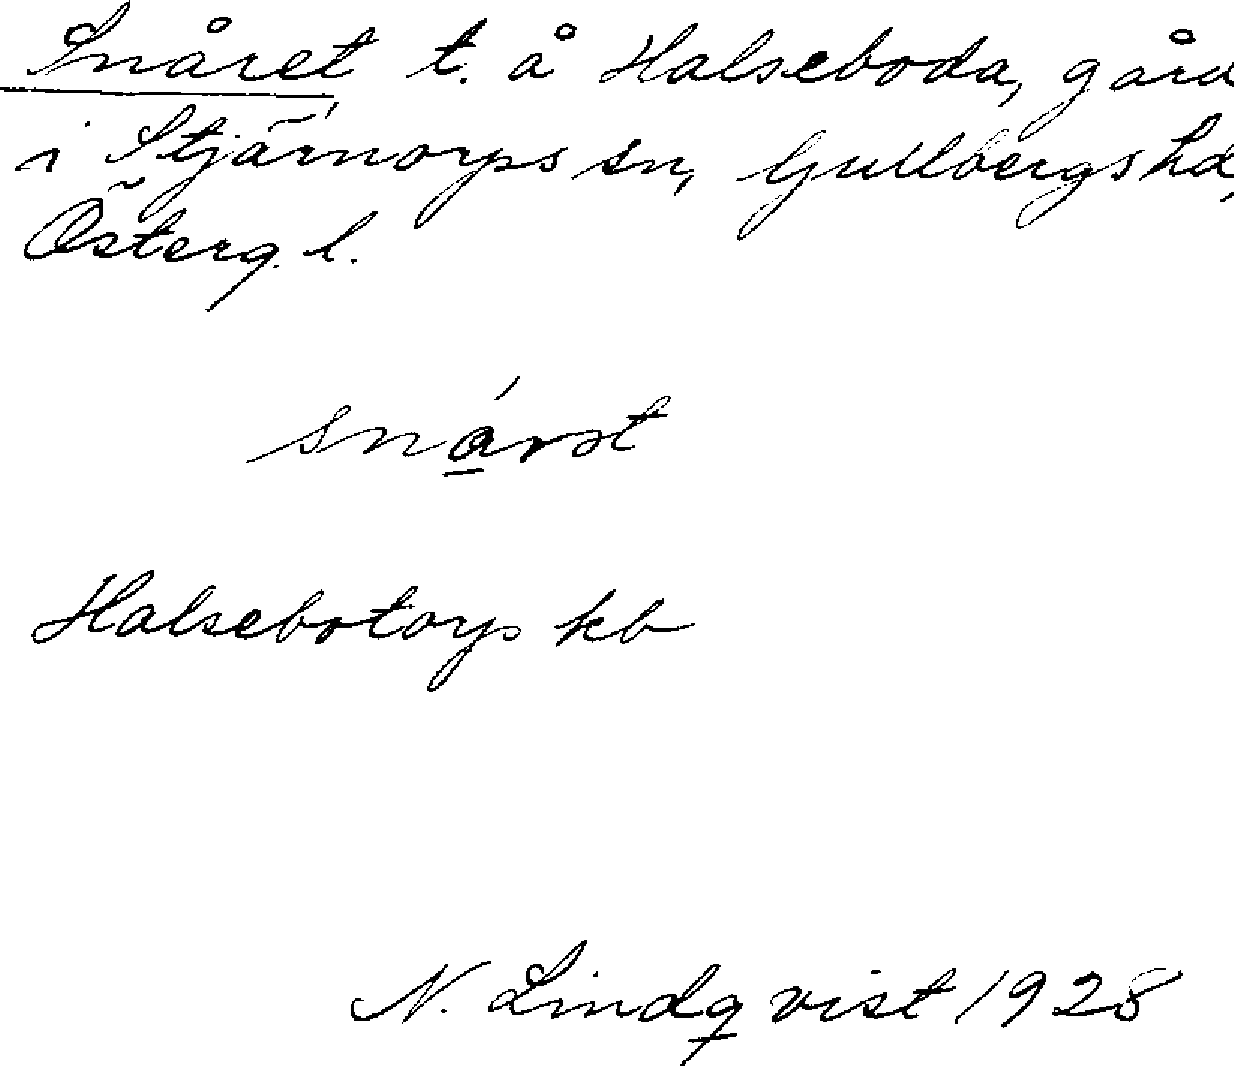 Snåret t. å Halseboda, gård
i Stjärnorps sn, Gullbergs hd,
Österg. l.
snárət
Halsebotorps kb
N. Lindqvist 1928